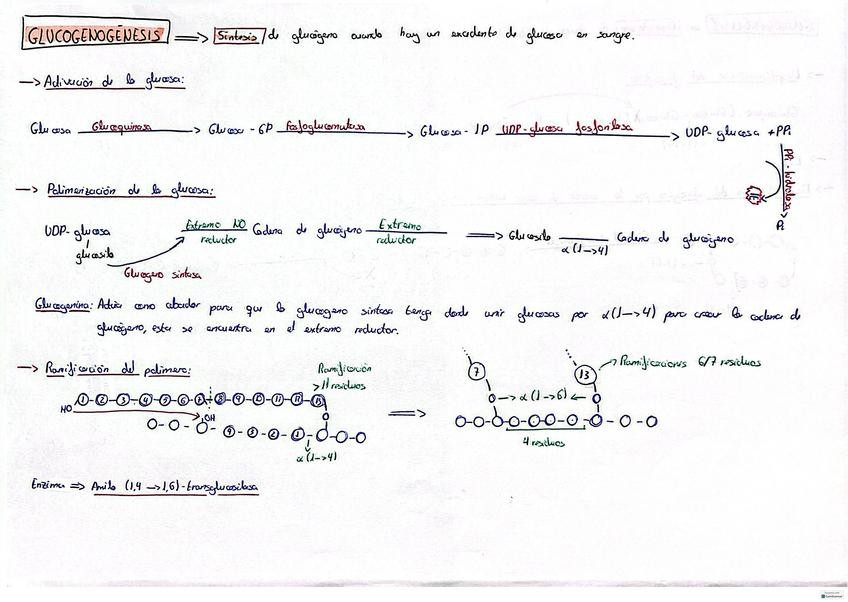 GLUCOGENOGÉNESIS => Síntesis de glucógeno cuando hay un excedente de glucosa en sangre.
-> Activación de la glucosa:
Glucosa Glucoquinasa -> Glucosa-6P Fosfoglucomutasa -> Glucosa-1P UDP-glucosa fosforilasa -> UDP-glucosa + PPi
PPi-hidrolasa
Pi
-> Polimerización de la glucosa:
UDP-glucosa Extremo NO reductor Cadena de glucógeno Extremo reductor => Glucosilo α(1->4) Cadena de glucógeno
glucosilo
Glucógeno sintasa
Glucogenina: Actúa como cebador para que la glucógeno sintasa tenga donde unir glucosas por α(1->4) para crear la cadena de
glucógeno, esta se encuentra en el extremo reductor.
-> Ramificación del polímero:
Ramificación
>11 residuos
7 13 -> Ramificaciones 6/7 residuos
1 2 3 4 5 6 7 8 9 10 11 12 13
HO OH
-> α(1->6) <-
4 3 2 1
=>
4 residuos
α(1->4)
Enzima => Amilo (1,4 -> 1,6)-transglucosilasa